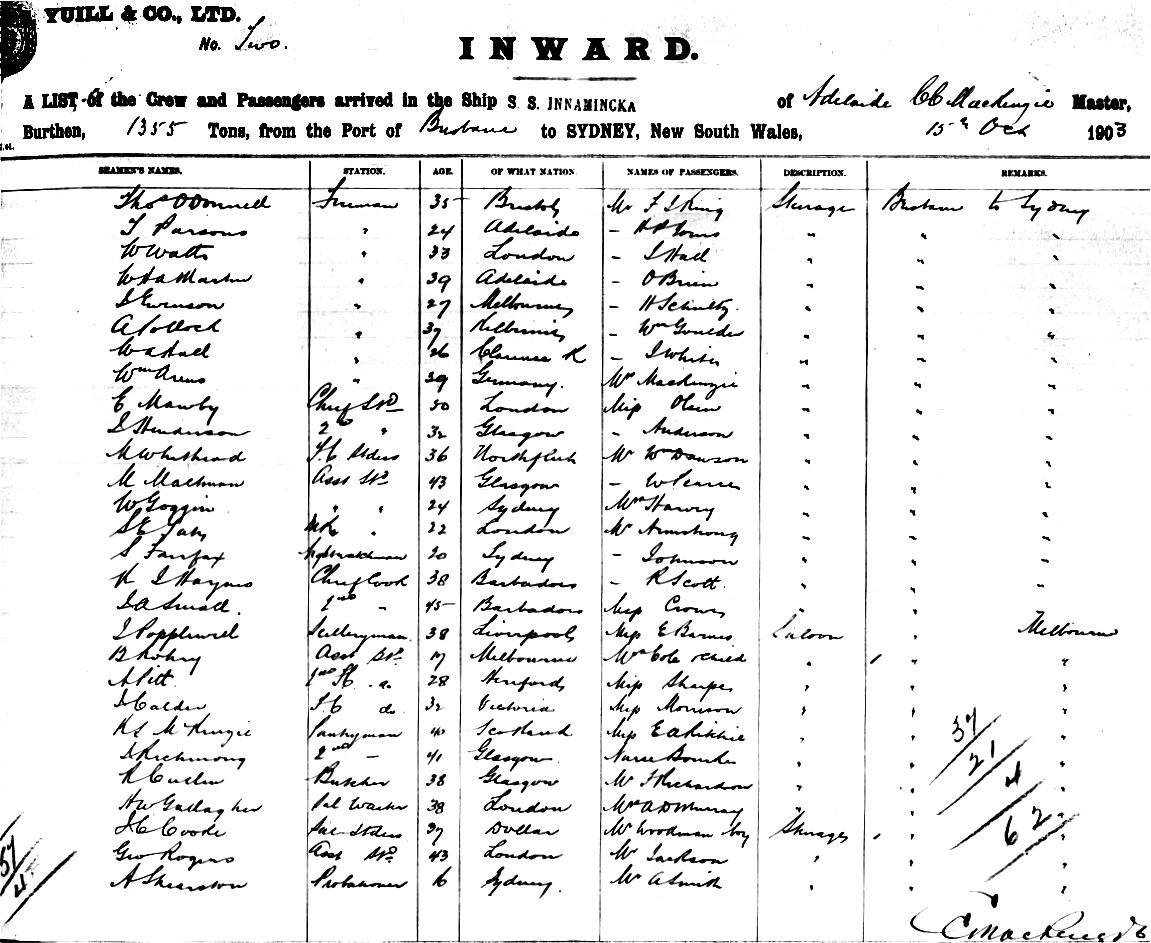 YUILL & CO., LTD.
No. Two.
INWARD.
A LIST of the Crew and Passengers arrived in the Ship S. S. INNAMINCKA of Adelaide CC Mackenzie Master,
Burthen, 1355 Tons, from the Port of Brisbane to SYDNEY, New South Wales, 15th Oct 1903
SEAMEN'S NAMES. STATION. AGE. OF WHAT NATION. NAMES OF PASSENGERS. DESCRIPTION. REMARKS.
Thos O'Donnell Fireman 35 Bristol Mr F S King Steerage Brisbane to Sydney
T Parsons " 24 Adelaide - " " "
W Watts " 33 London - J Hall " " "
W H a Martin " 39 Adelaide - O'Brien " " "
J Evenson " 27 Melbourne - H Schultz " " "
A Pollock " 37 - Wm Goulder " " "
" 26 Clarence R - J White " " "
Wm Arens " 39 Germany. Mrs Mackenzie " " "
E Mawby Chief Std 30 London Miss Olsen " " "
J Henderson 2nd " 32 Glasgow - Anderson " " "
M Whitehead F.C. Stdess 36 Northfleet Mr Wm Dawson " " "
M Mathman Asst Std 43 Glasgow - W Pearce " " "
W Goggin " " 24 Sydney Mrs Harvey " " "
" 22 London Mr Armstrong " " "
S Fairfax Nightwatchman 20 Sydney - Johnson " " "
H J Haynes Chief Cook 38 Barbadoes - R Scott " " "
J A Small. 2nd " 45 Barbadoes Miss " " "
J Popplewell Sculleryman 38 Liverpool Miss E Barnes Saloon " Melbourne
B Rohry Asst Std. 17 Melbourne Mrs Cole & child " " "
A Pitt 28 Hereford Miss Sharpe " " "
J Calder F.C do 32 Victoria Miss Morrison " " "
McKenzie Pantryman 40 Scotland Miss E a Ritchie " 37
J Richmond 2nd " 41 Glasgow Nurse Bourke 21
R Cutler Butcher 38 Glasgow Mr F Richardson " " 4
H W Gallagher Sal Waiter 38 London Mrs A D Murray " " 62
J C Coode Sal Stdess 37 Dollar Mr Woodman boy Steerage " "
Geo Rogers Asst Std 43 London Mr Jackson " " "
A Shearston Probationer 16 Sydney. Mr A Smith " " "
57
4
C Mackenzie